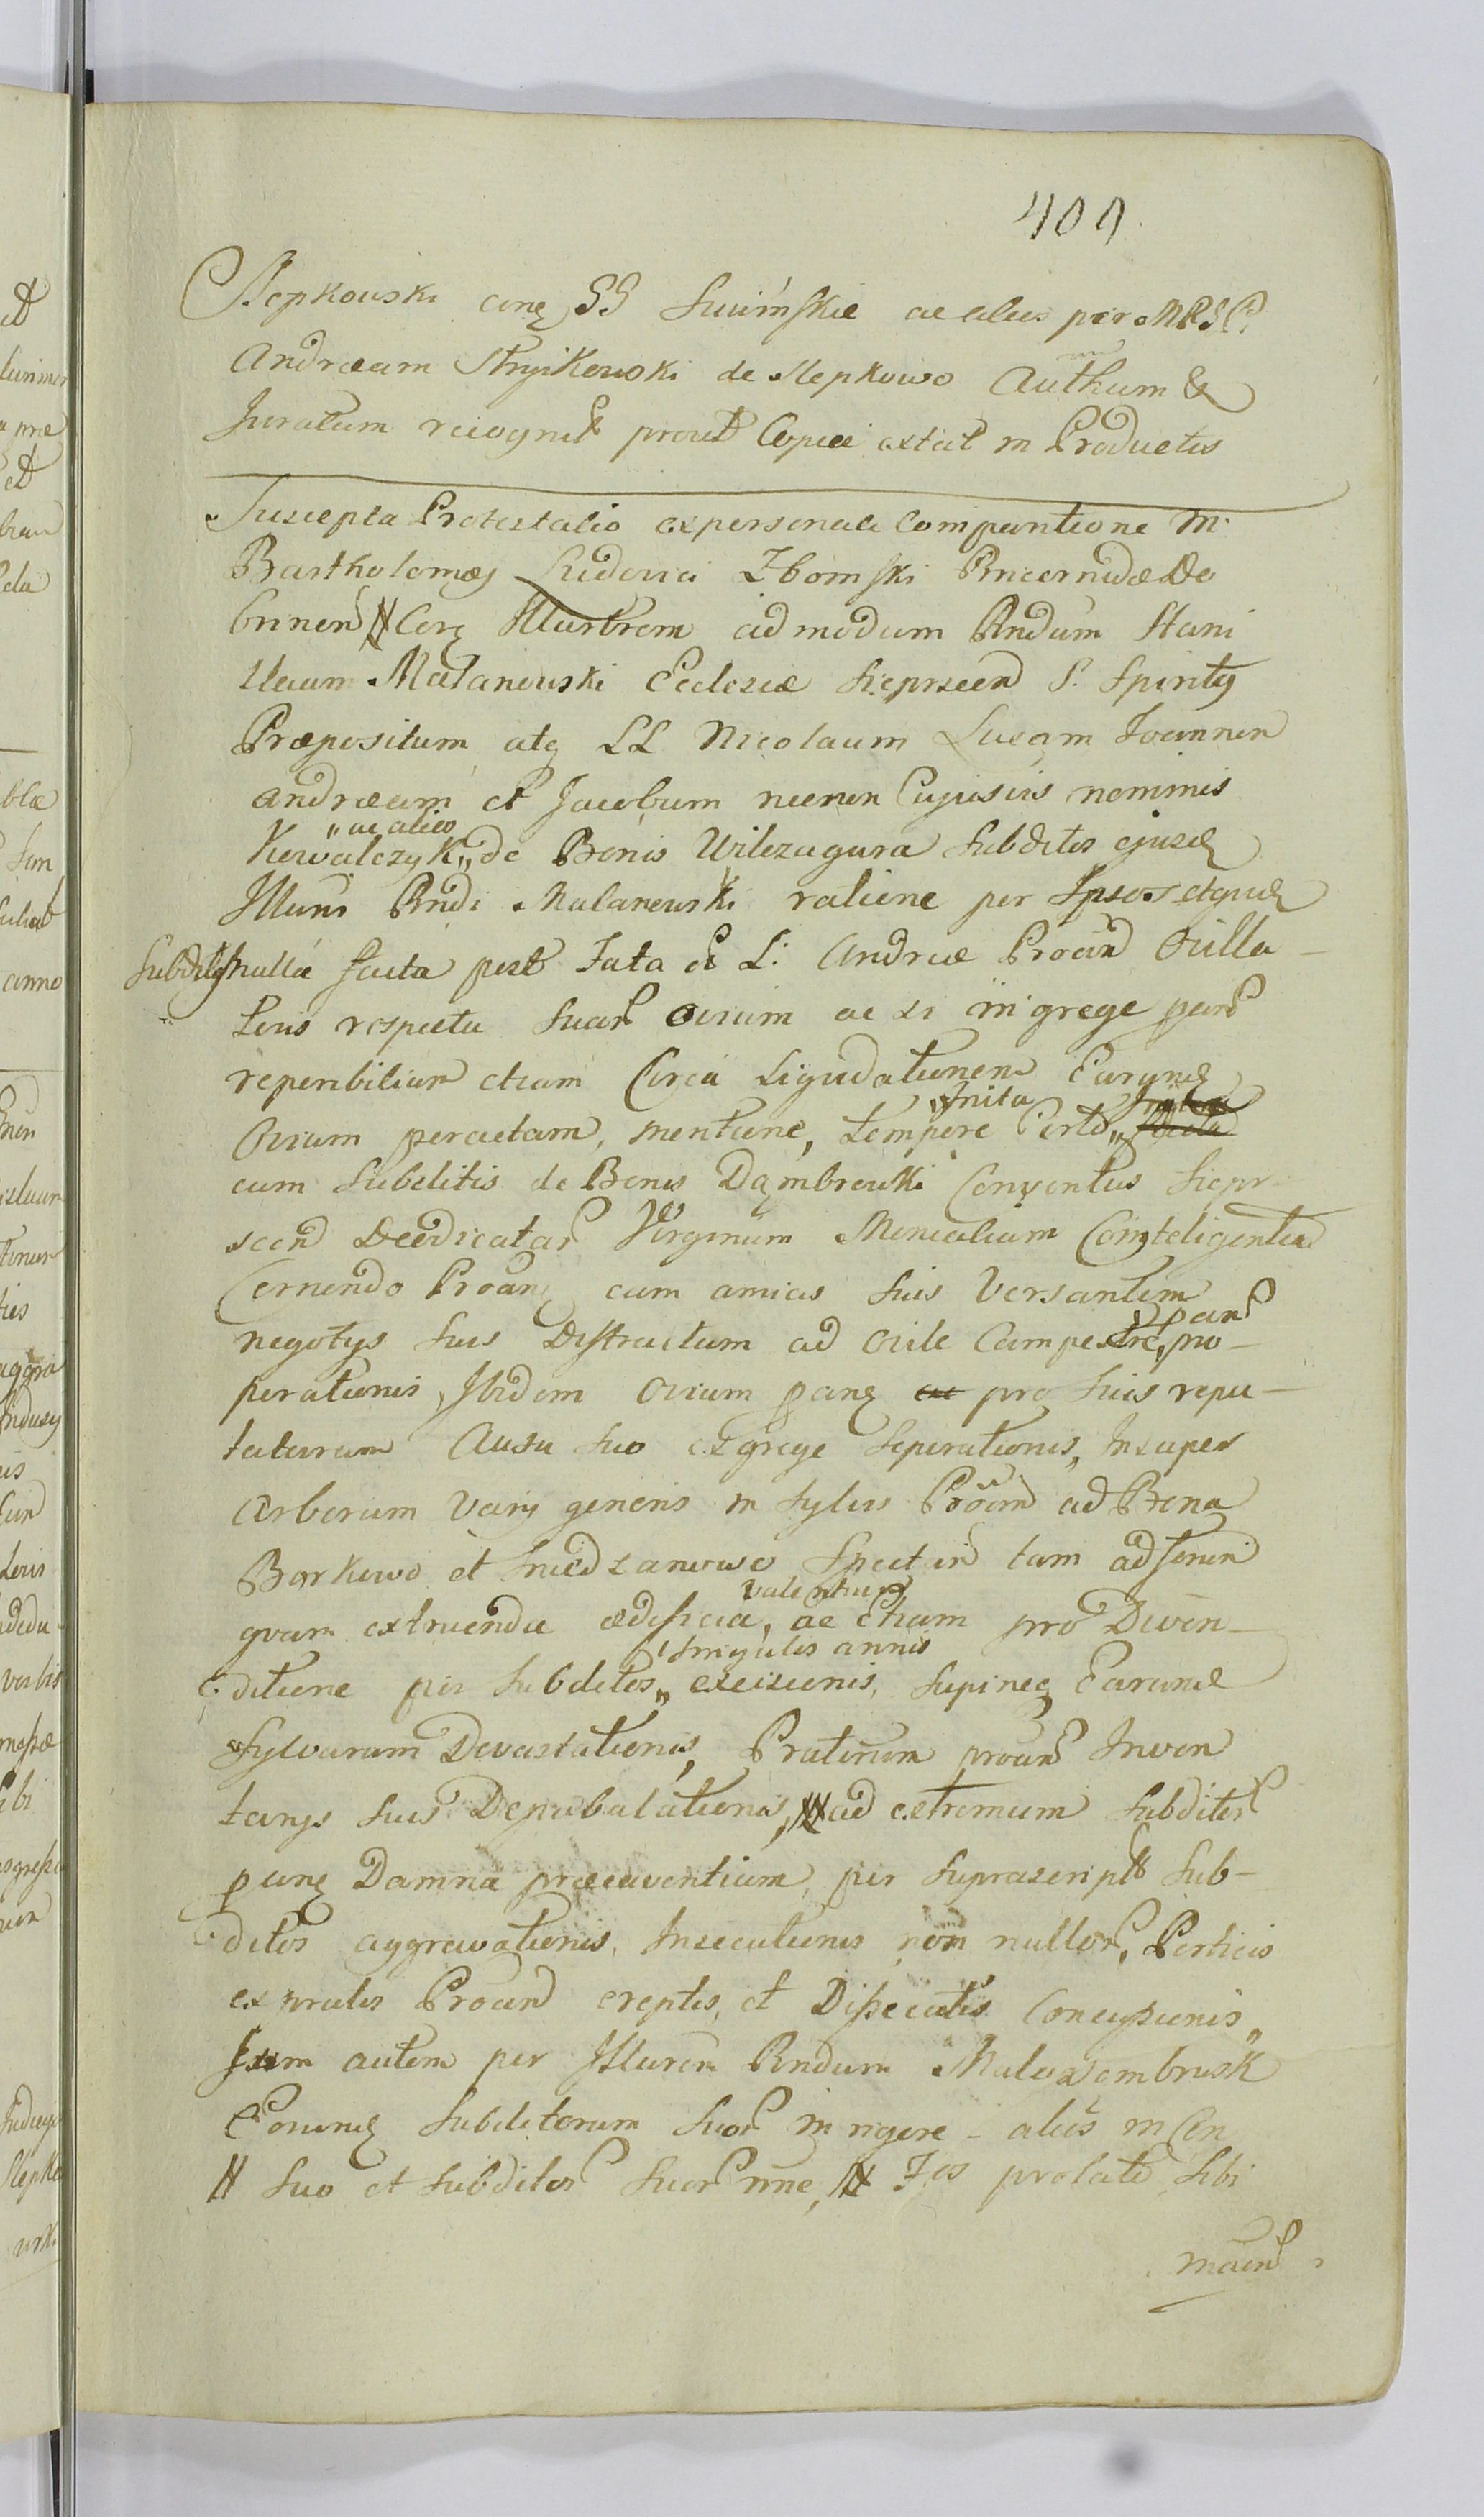 409
Slepkowski cirq SS Suiminskie ac alius per MRSP.
Andraeam Stryikowski de Slepkowo Authum &
Juratum recognit prout Copia extat in Productis
Suscepta Protestatio ex personali Comparitione M.
Bartholomaej Ludovici Zbomski Pincernidae Do
brinen Corq Illustrem admodum Rndum Stani
slaum Malanowski Ecclesiae Sieprscen S. Spiritus
Praepositum atq LL Nicolaum Lucam Joannen
Andraeam et Jacobum necnon Cujusvis nominis
„ac alios
Kowalczyk „ de Bonis Wilczagura Subditos ejusd
Illuris Rndi Malanowski ratione per Ipsos
Subditos nulla facta post Fata L: Andreae Proan Ovilla
toris respectu Suar ovium ac si in grege pan
reperibilium etiam Circa Liquidationem Earund
„Inita
Ovium peractam, mentione, tempore Certo „
cum Subditis de Bonis Dąmbrowki Conventus Siepr
scen Deo dicatar Virginum Monialium Conteligentia
Cernendo Proan cum amicis suis Versantem
pan
negotys suis Distractum ad ovile Campestre „ pro-
perationis, Ibidem ovium panq pro suis repu-
tatarum Ausu suo ex grege Seperationis, Insuper
Arborum Varij generis in Sylvis Proan ad Bona
Borkowo et Sniedzanowo Spectan tam ad
valentium
quam extruenda aedificia, ac Etiam pro Diven-
„ singulis annis
ditione per Subditos „ excisionis, Supineq Earund
Sylvarum Devastationis, Pratorum proan Inven
tarijs suis Depabulationis, ad extremum Subditor
panq Damna praecaventium, per Suprascriptos Sub-
ditos aggravationis, Insecutionis non nullor, Perticis
ex pratis Proan ereptis, et Dissecatis Concussionis „
autem per Illurem Rndum Malo
Eorumq Subditorum Suor in rigore - alias in Con
Suo et Subditor Suor nne, Jos prolate Sibi